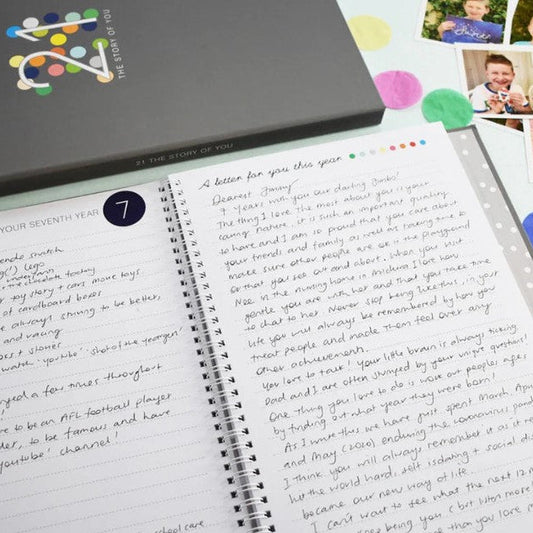 21
THE STORY OF YOU
21 THE STORY OF YOU
YOUR SEVENTH YEAR
7
nendo switch
lego
toy story + cars movie toys
of cardboard boxes
always striving to be better,
and racing
+ stories
watch 'youtube'
played a few times throughout
to be an AFL football player
to be famous and have
youtube' channel!
school care
A letter for you this year
Dearest Jimmy
7 years with you our darling Jimbo!
The thing I love the most about you is your
caring nature. It is such an important quality
to have and I am so proud that you care about
your friends and family as well as taking time to
make sure other people are ok in the playground
or that you see out and about. When you visit
Nee in the nursing home in Mildura I love how
gentle you are with her and that you take time
to chat to her. Never stop being like this, in your
life you will always be remembered by how you
treat people and made them feel over any
other achievement.
You love to talk! Your little brain is always ticking
Dad and I are often stumped by your unique questions!
One thing you love to do is work out peoples ages
by finding out what year they were born!
As I write this we have just spent March, April
and May (2020) enduring the coronavirus pand
I think you will always remember it as it re
hit the world hard, self isolation + social dis
became our new way of life...
I can't wait to see what the next 12 m
being you (but listen more!
than you love m